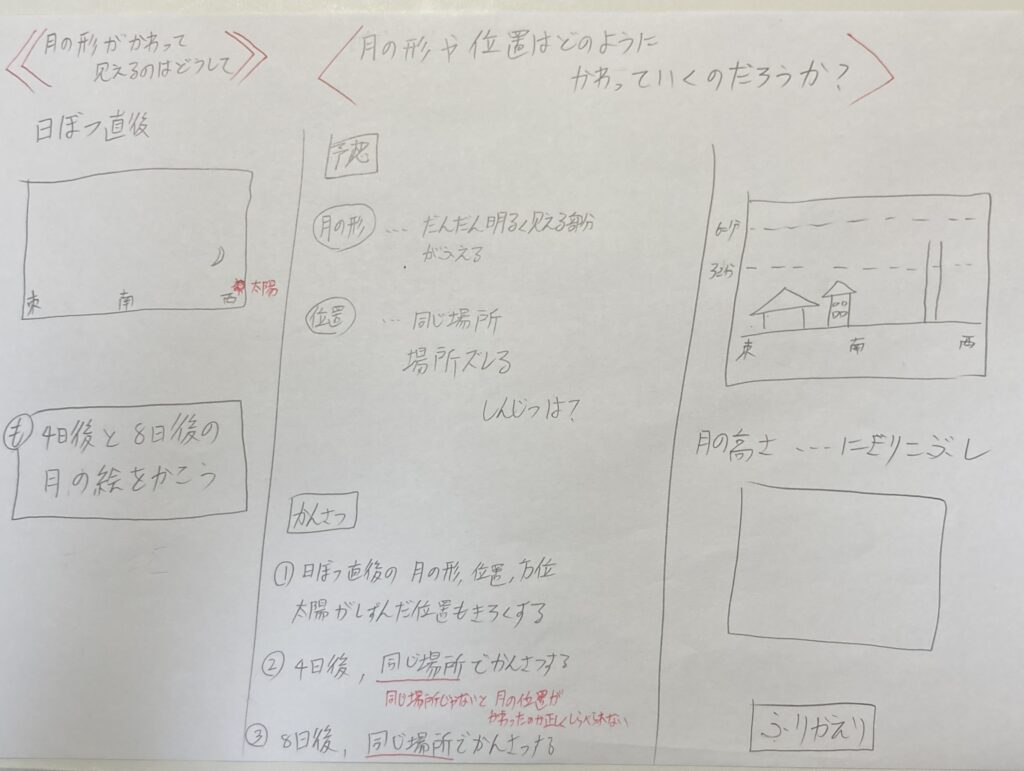 月の形がかわって
見えるのはどうして
日ぼつ直後
東
南
西
太陽
も
4日後と8日後の
月の絵をかこう
月の形や位置はどのように
かわっていくのだろうか?
予想
月の形 … だんだん明るく見える部分
がふえる
位置 … 同じ場所
場所ズレる
しんじつは?
かんさつ
① 日ぼつ直後の月の形,位置,方位
太陽がしずんだ位置もきろくする
② 4日後,同じ場所でかんさつする
同じ場所じゃないと月の位置が
かわったのか正しくしらべられない
③ 8日後,同じ場所でかんさつする
東
南
西
月の高さ ……にぎりこぶし
ふりかえり